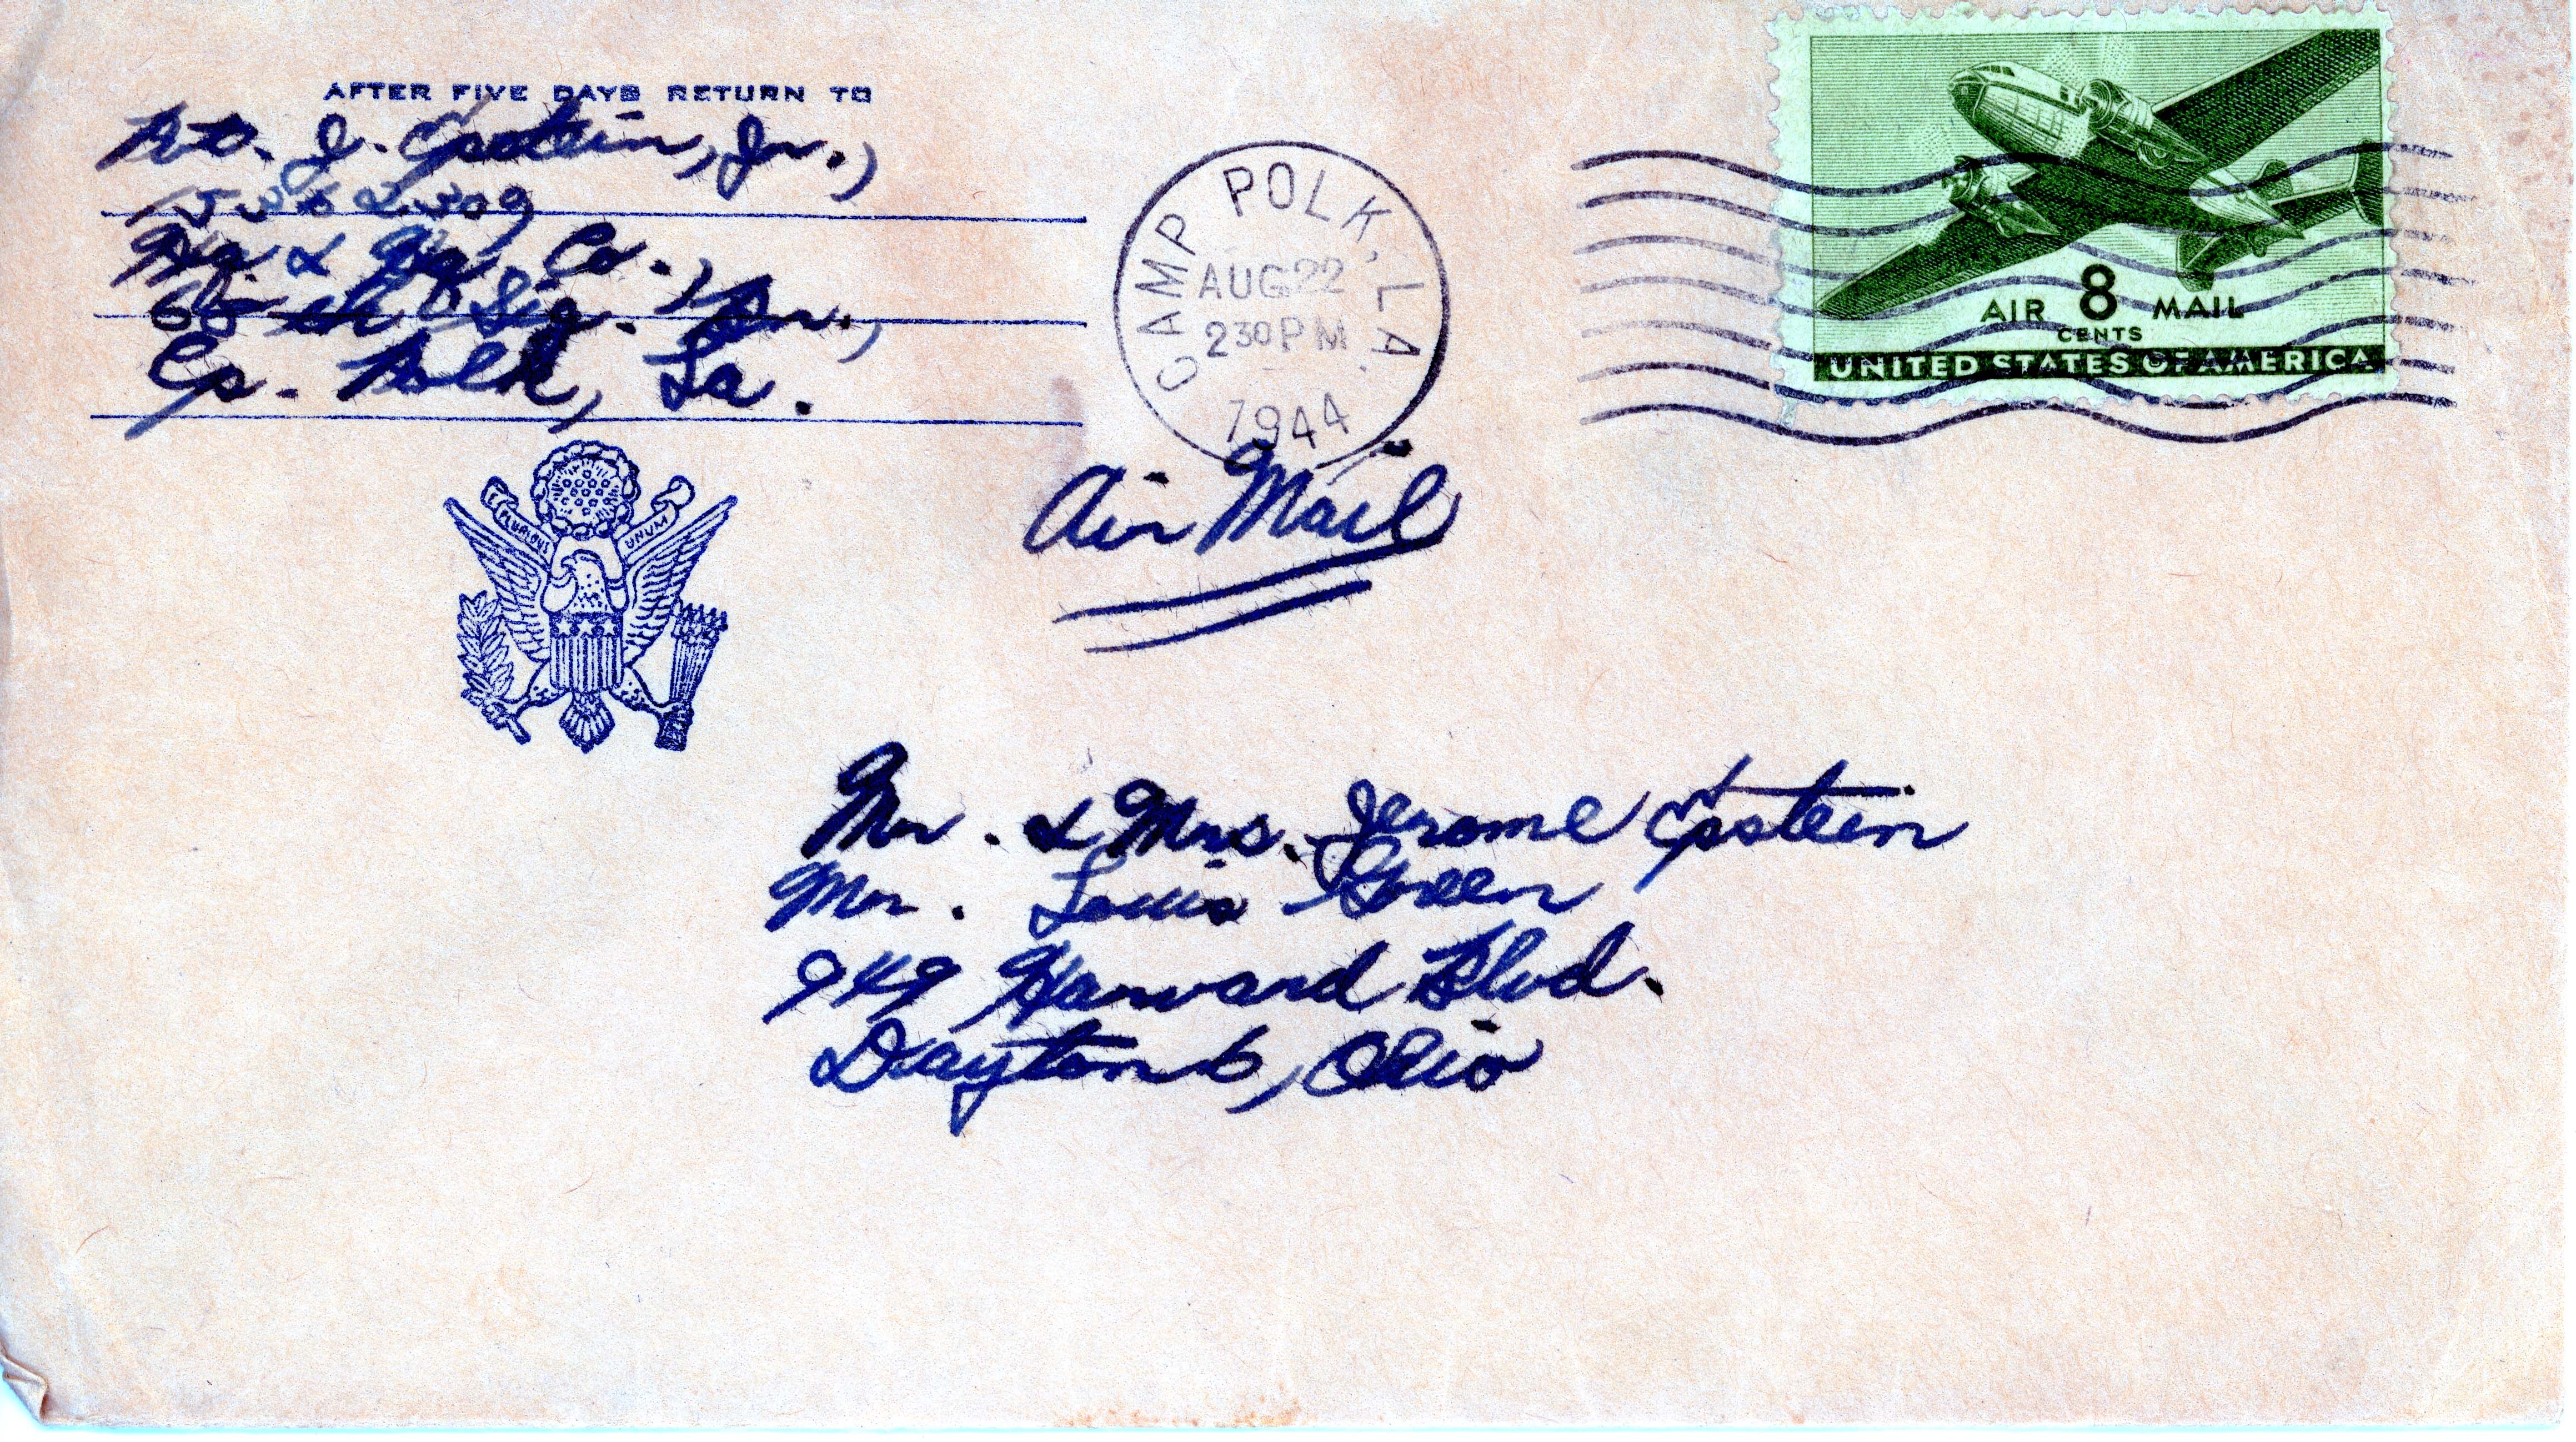 AFTER FIVE DAYS RETURN TO
Pvt. J. Epstein, Jr.,
Hq & Hq. Co.,
Sig. Bn.,
Cp. Polk, La.
CAMP POLK, LA.
AUG 22
2 30 PM
1944
AIR 8 MAIL
CENTS
UNITED STATES OF AMERICA
PLURIBUS UNUM
Air Mail
Mr. & Mrs. Jerome Epstein
Mr. Louis Green
949 Harvard Blvd.
Dayton 6, Ohio